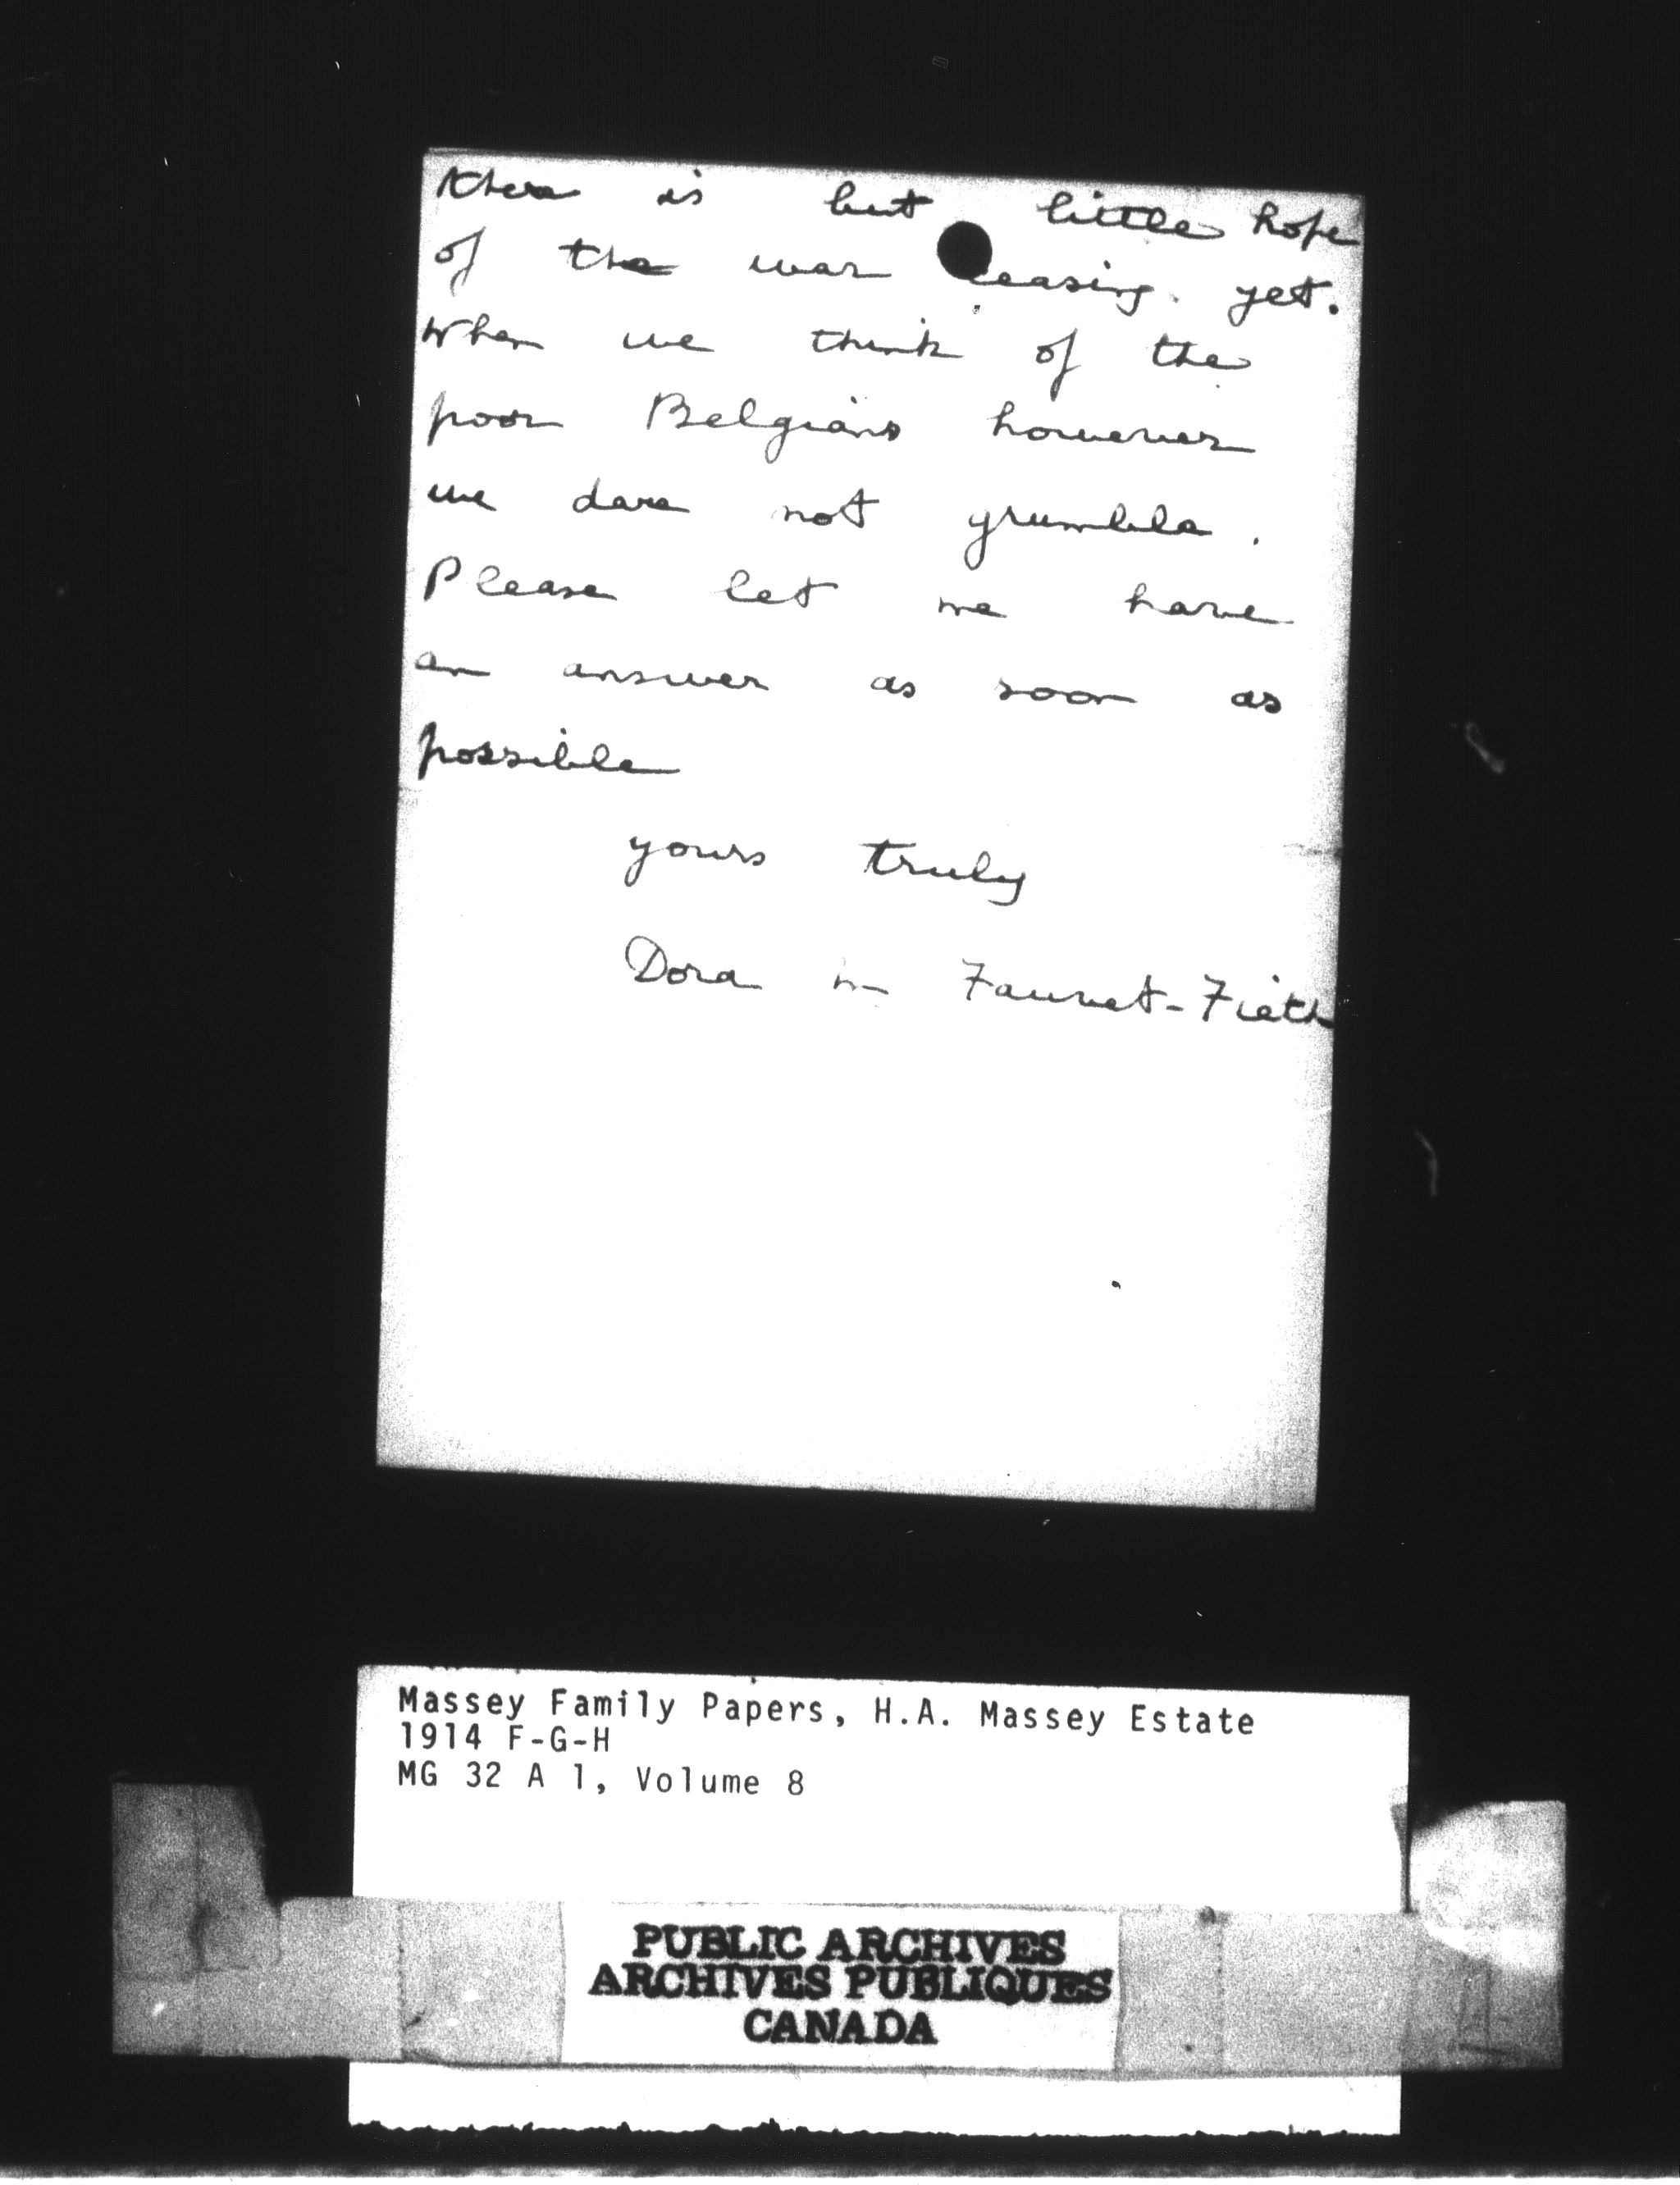 there is but little hope
of the war ceasing yet.
When we think of the
poor Belgians however
we dare not grumble.
Please let me have
an answer as soon as
possible
yours truly
Dora
Massey Family Papers, H.A. Massey Estate
1914 F-G-H
MG 32 A 1, Volume 8
PUBLIC ARCHIVES
ARCHIVES PUBLIQUES
CANADA